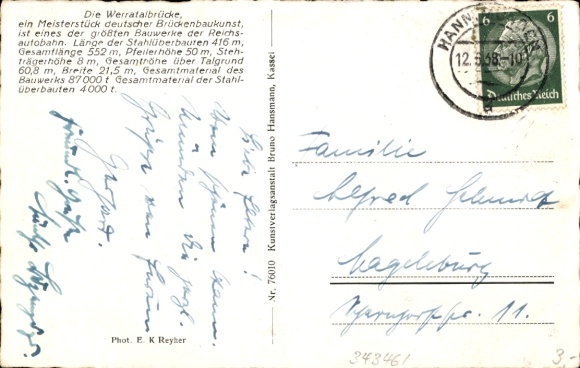 Die Werratalbrücke,
ein Meisterstück deutscher Brückenbaukunst,
ist eines der größten Bauwerke der Reichs-
autobahn. Länge der Stahlüberbauten 416 m,
Gesamtlänge 552 m, Pfeilerhöhe 50 m, Steh-
trägerhöhe 8 m, Gesamthöhe über Talgrund
60,8 m, Breite 21,5 m, Gesamtmaterial des
Bauwerks 87000 t Gesamtmaterial der Stahl-
überbauten 4000 t.
Liebe Eltern!
Vom schönen Hann.
Münden die herzl.
Grüße von Eurem
Gerhard.
Nr. 76010 Kunstverlagsanstalt Bruno Hansmann, Kassel
Phot. E. K Reyher
6 6
Deutsches Reich
HANN.
12.5.38.-10
Familie
Alfred Schmidt
Magdeburg
Scharnhorststr. 11.
343461
3.-